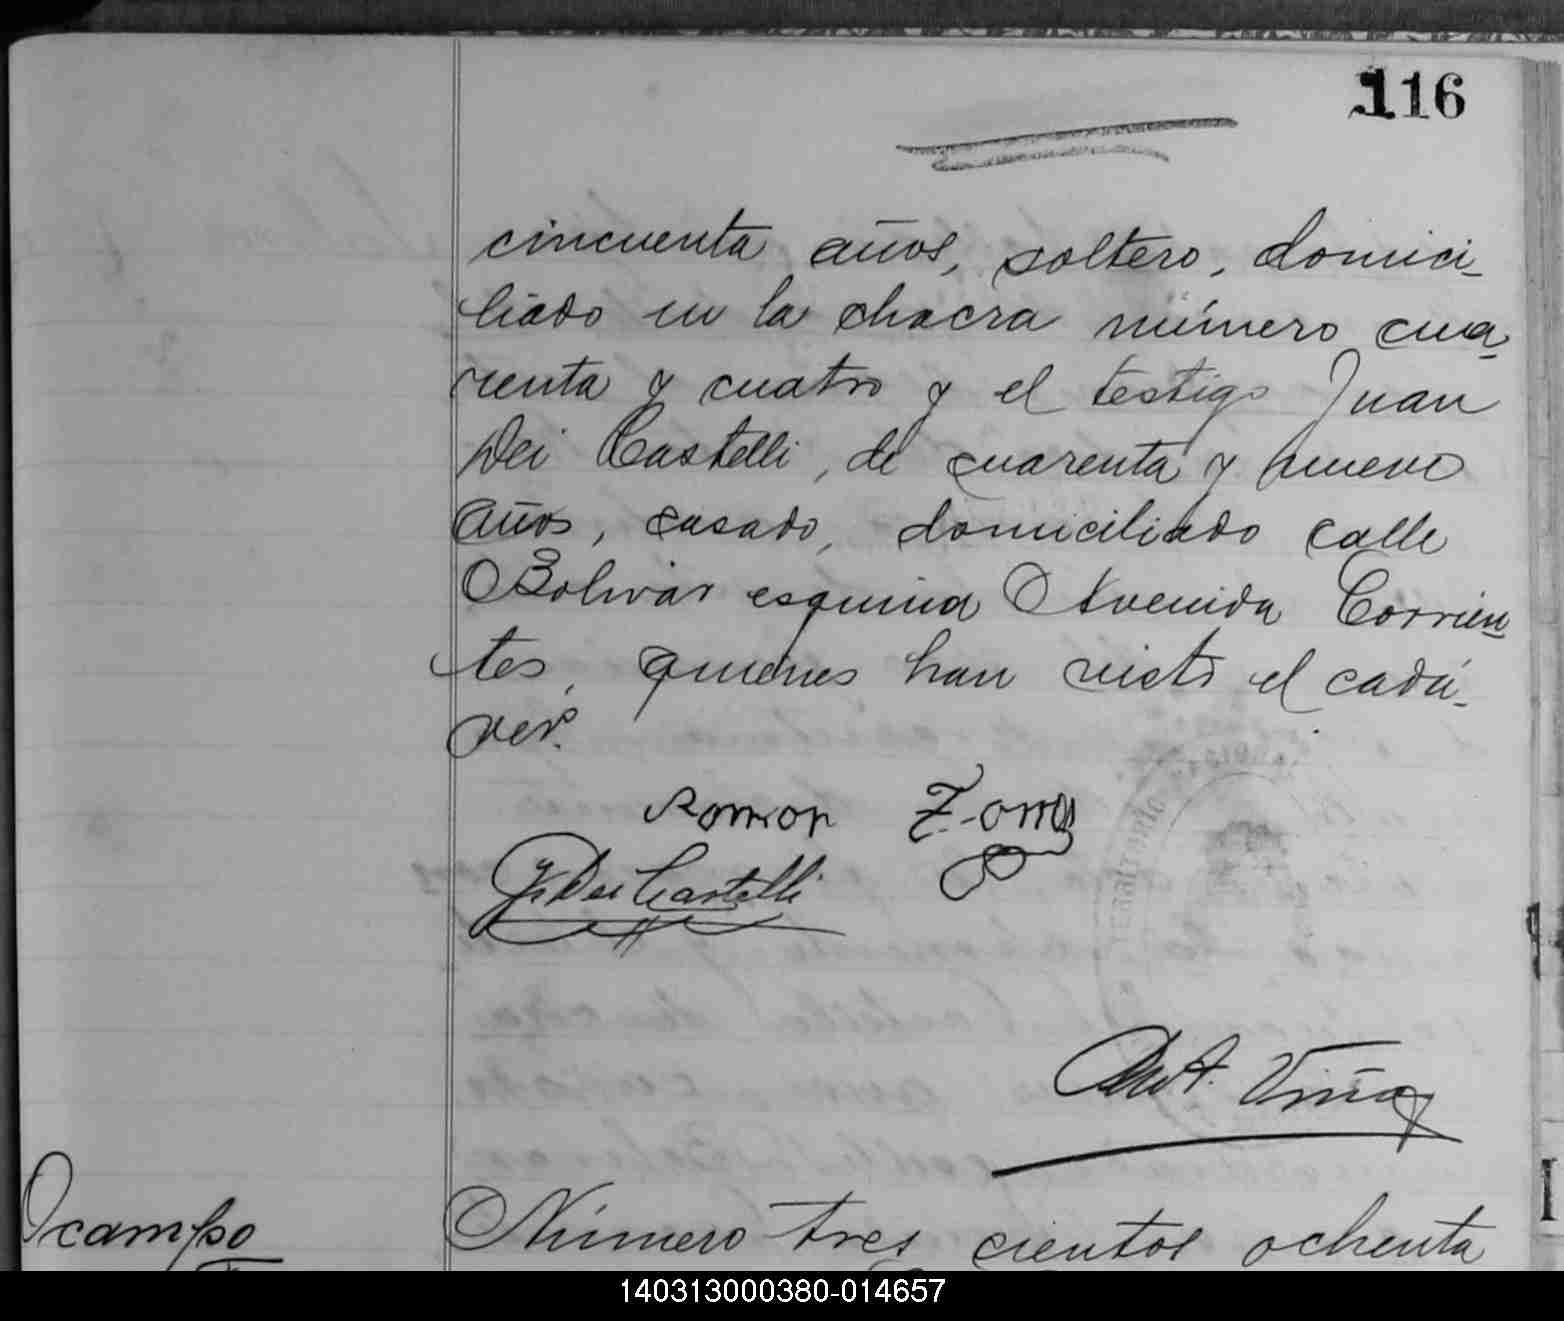 116
cincuenta años, soltero, domici-
liado en la chacra número cua-
renta y cuatro y el testigo Juan
Dei Castelli, de cuarenta y nueve
años, casado, domiciliado calle
Bolivar esquina Avenida Corrien-
tes, quienes han visto el cadá-
ver.
Ramon
J. Dei Castelli
Ant. Viña
Ocampo
Número tres cientos ochenta
140313000380-014657